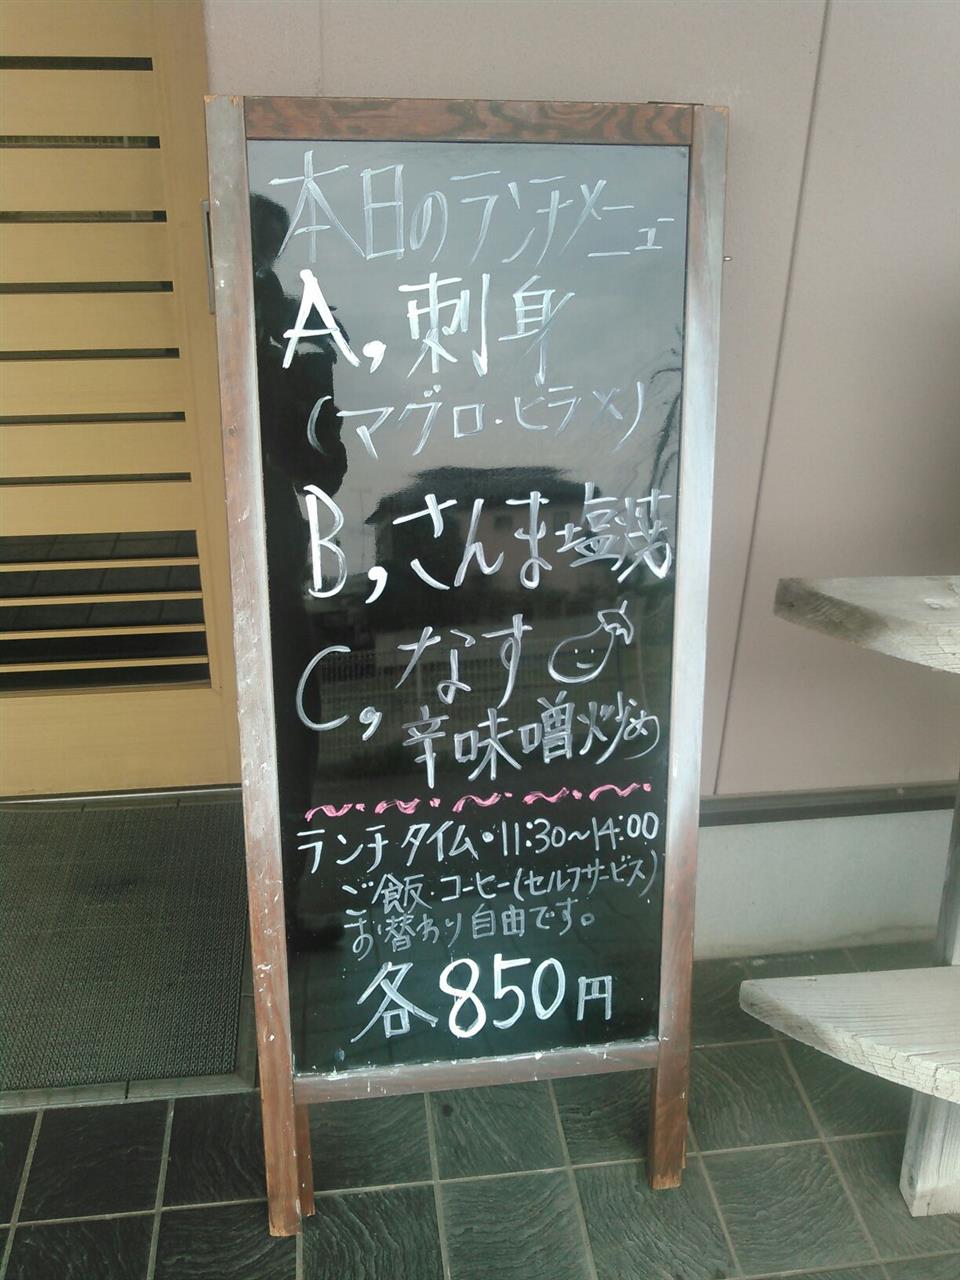 本日のランチメニュー
A, 刺身
(マグロ・ヒラメ)
B, さんま塩焼
C, なす
辛味噌炒め
ランチタイム・11:30〜14:00
ご飯・コーヒー(セルフサービス)
お替わり自由です。
各850円